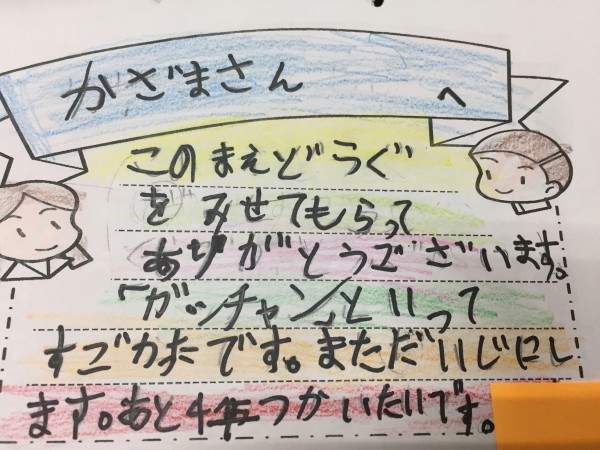 かざまさん へ
このまえどうぐ
を みせてもらって
ありがとうございます。
「ガッチャン」といって
すごかたです。まただいじにし
ます。あと4年つかいたいです。